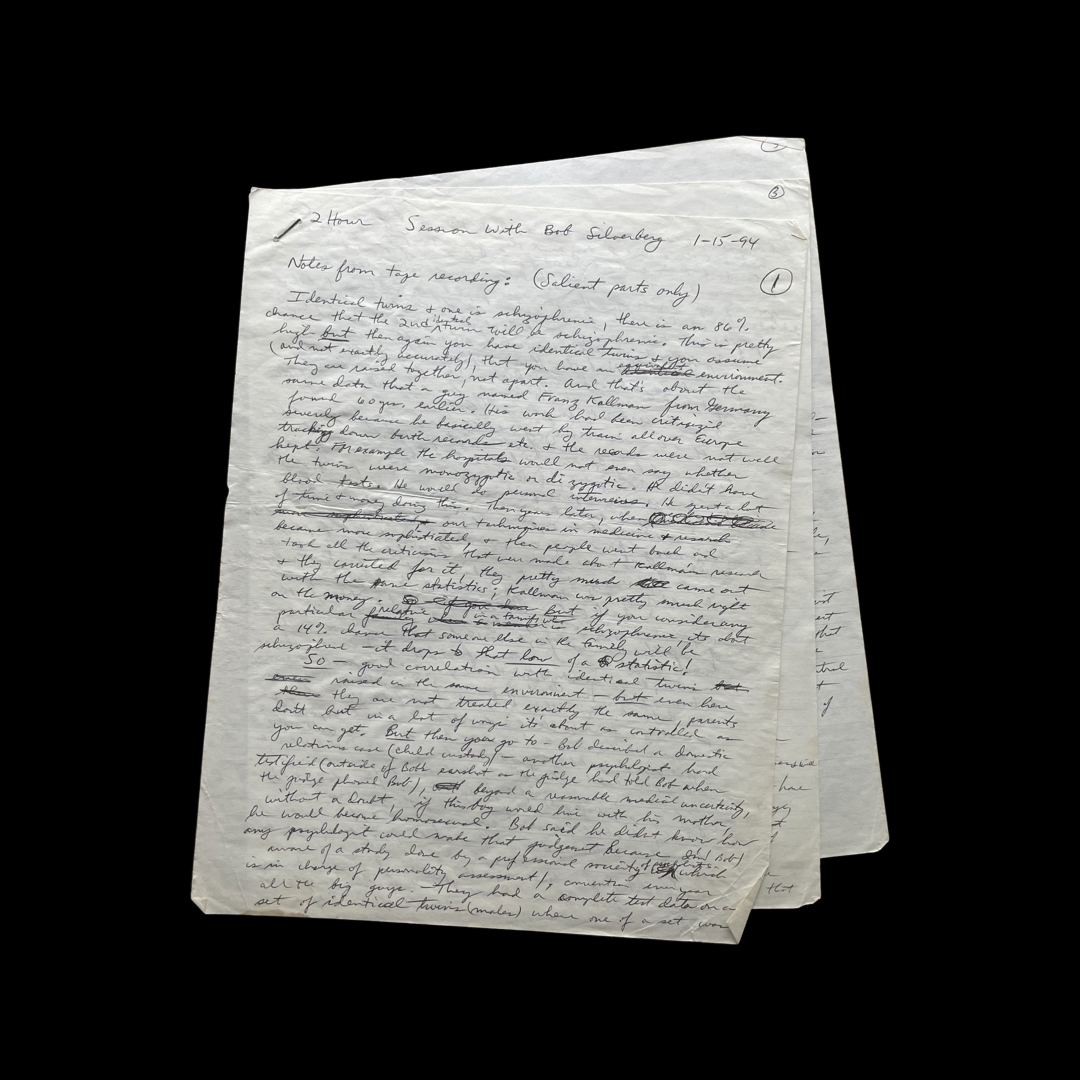 2 Hour Session with Bob Silverberg 1-15-94
Notes from tape recording: (Salient parts only)
1
3
Identical twins & one is schizophrenic, there is an 86%
chance that the 2nd identical twin will be schizophrenic. This is pretty
high but then again you have identical twins & you assume
(and not exactly accurately), that you have an environment.
They are raised together, not apart. And that's about the
same data that a guy named Franz Kallman from Germany
found 60 yrs. earlier. His work had been critisized
severely because he basically went by train all over Europe
tracking down birth records etc. & the records were not well
kept. For example the hospitals would not even say whether
the twins were monozygotic or dizygotic. He didn't have
blood tests. He would do personal interviews. He spent a lot
of time & money doing this. Then years later, when
our techniques in medicine & research
became more sophisticated, & then people went back and
took all the criticisms that were made about Kallman's research
& they corrected for it, they pretty much came out
with the same statistics; Kallman was pretty much right
on the money. But if you consider any
particular relative in a family schizophrenic, its about
a 14% chance that someone else in the family will be
schizophrenic — it drops to that low of a statistic!
So — good correlation with identical twins
raised in the same environment — but even here
they are not treated exactly the same, parents
don't but in a lot of ways it's about as controlled as
you can get. But then you go to — Bob described a domestic
relations case (child custody) — another psychologist had
testified (outside of Bob's earshot as the judge had told Bob when
the judge phoned Bob), beyond a reasonable medical uncertainty,
without a doubt, if this boy would live with his mother
he would become homosexual. Bob said he didn't know how
any psychologist could make that judgement because (Bob)
aware of a study done by a professional society which
is in charge of personality assessment, convention every year
all the big guys. They had a complete test data on a
set of identical twins (males) where one of a set was